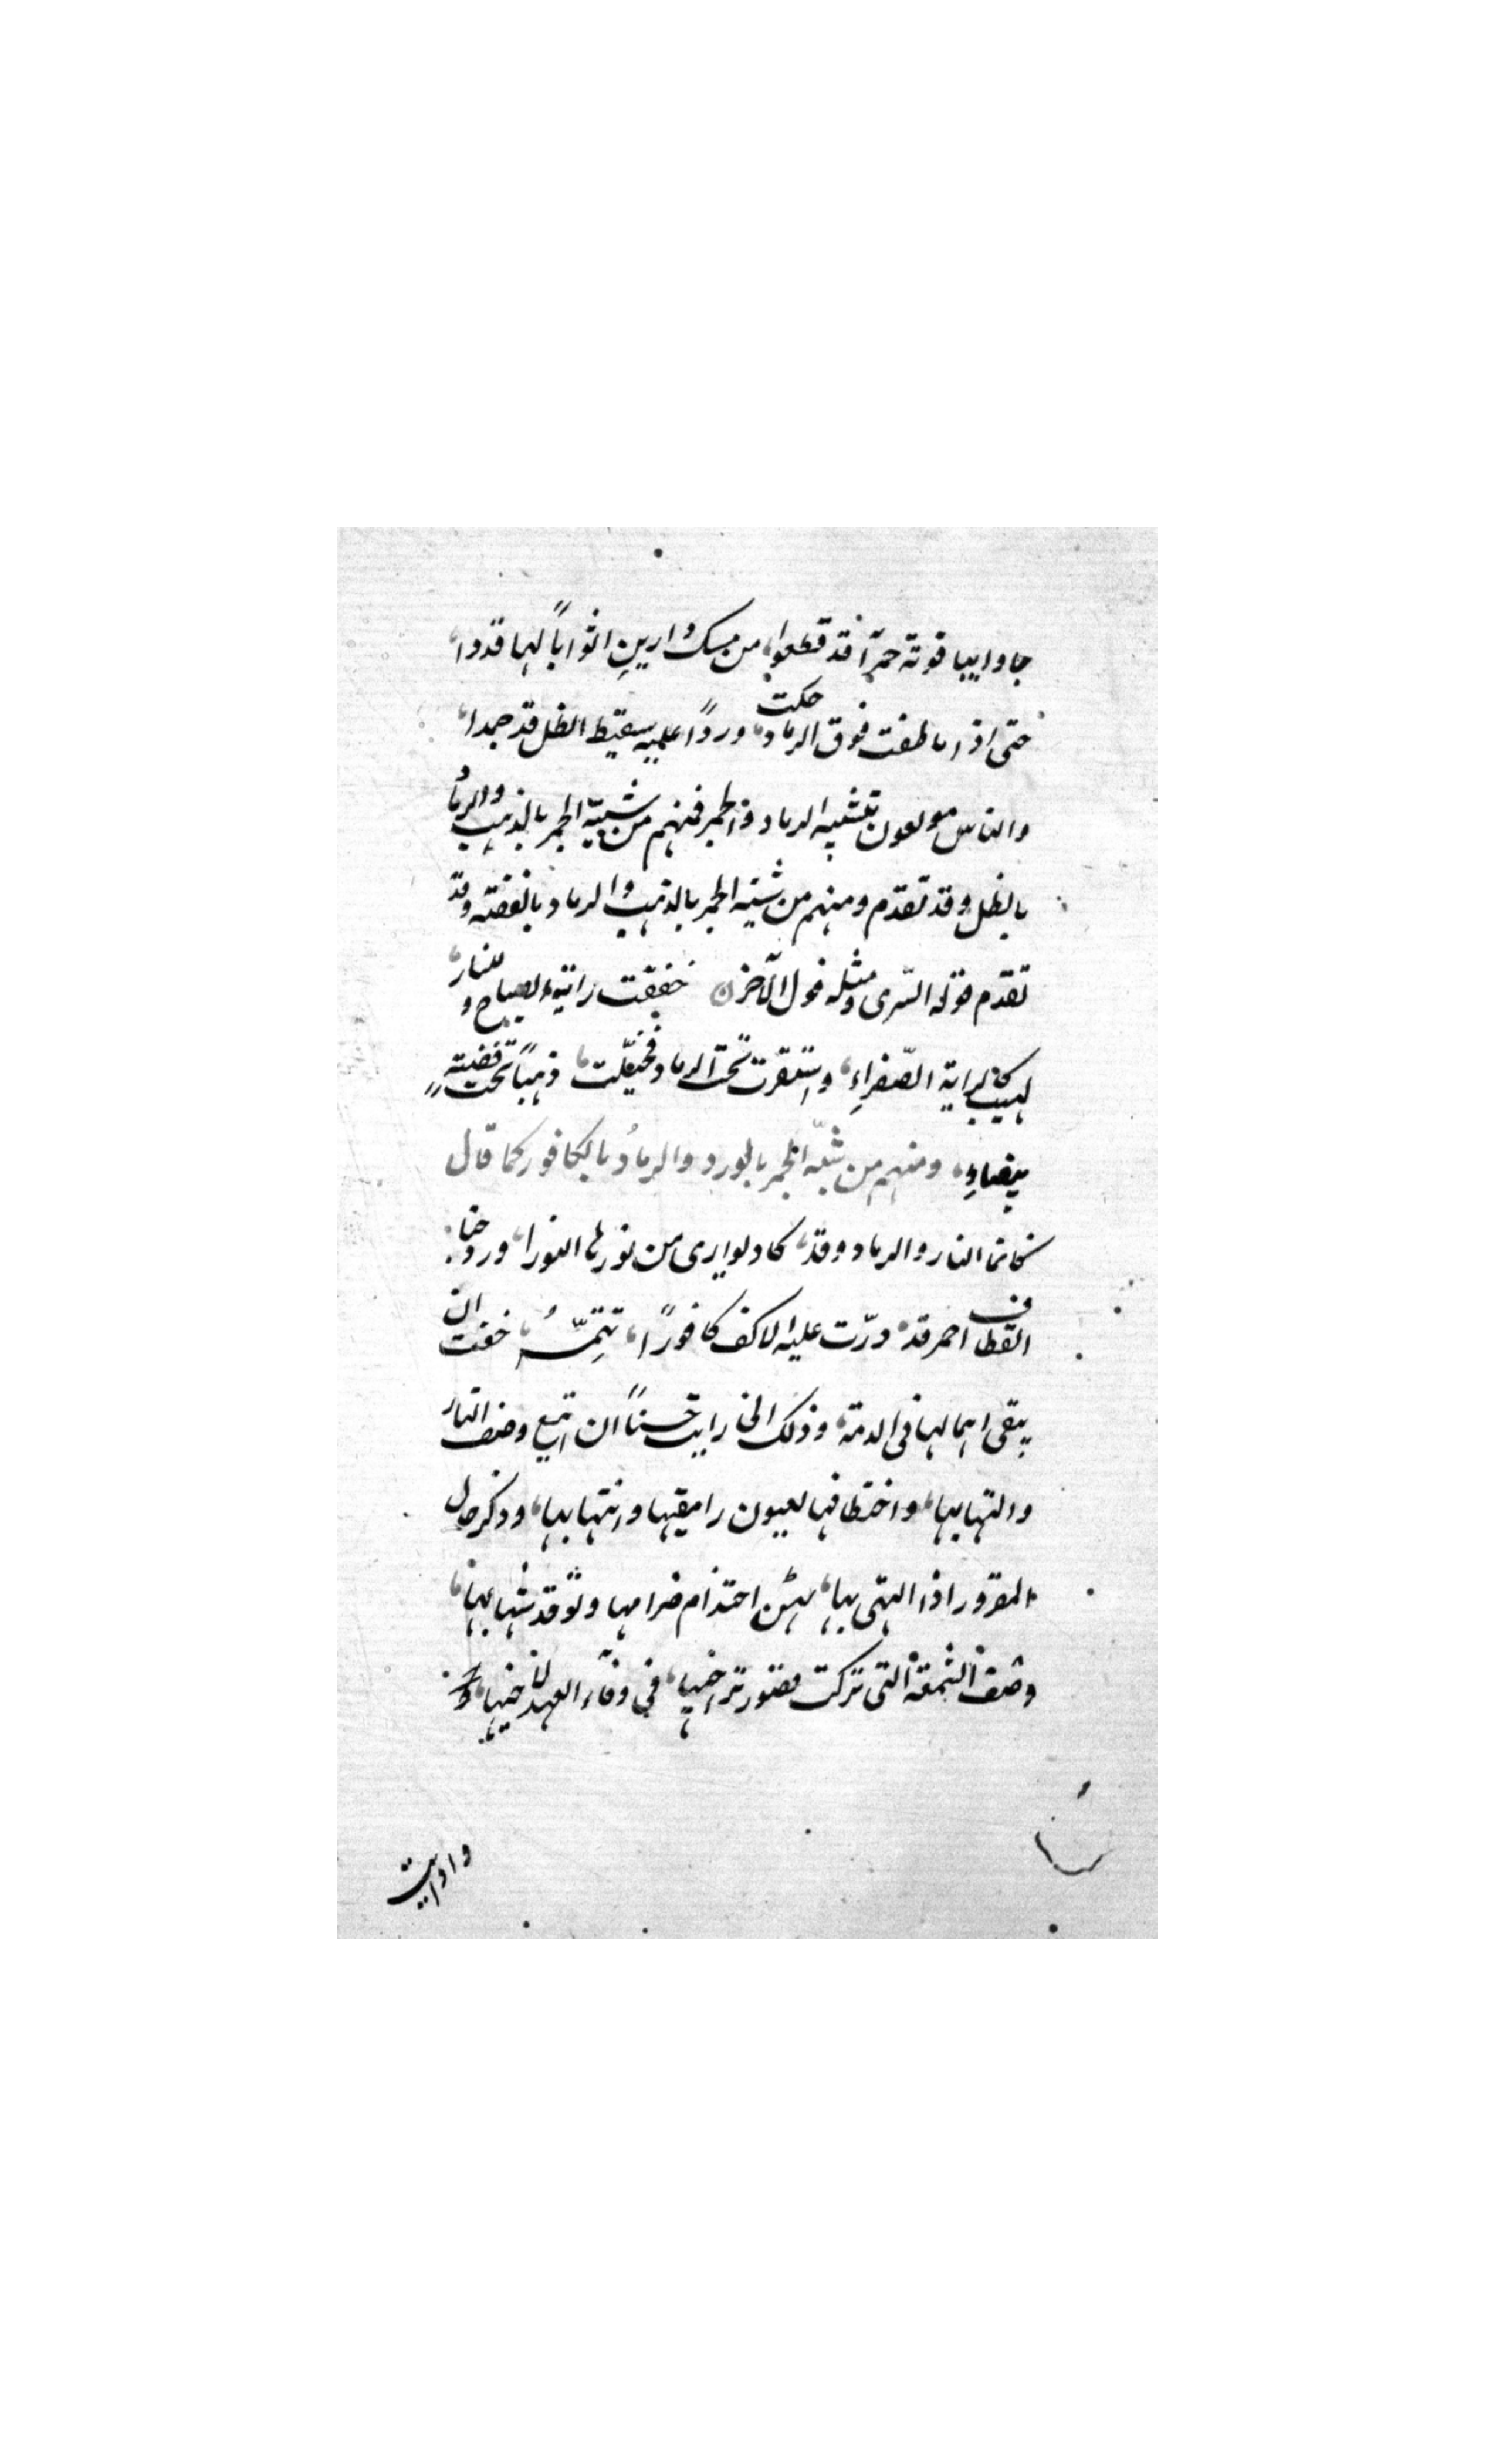 جاوا بيا قوتة حمرآ قد قطعوا، من مسك دارين اثواباً لها قدوا،
حتى اذا ما طفت فوق الرماد، حكت وردًا عليه سقيط الطل قد جمدا،
والناس مولعون بتشبيه الرماد والجمر فمنهم من شبّه الجمر بالذهب والرمادُ
بالطل وقد تقدم ومنهم من شبّه الجمر بالذهب والرماد بالفضة وقد
تقدم قوله السّرى ومثله قول الآخر ن خفقت راية الصباح و للنار،
لهيب كالراية الصّفراءِ، واستقرت تحت الرماد فخيّلت، ذهبًا تحت فضةٍ
بيضاءِ، ومنهم من شبّه الجمر بالورد والرمادُ بالكافور كما قال
كانما النار والرماد وقد، كاد يوارى من نورها النورا، ورد جنا
القطاف احمر قد، درّت عليه الاكف كافورًا، تتِمّةُ، خفت ان
يبقى اهمالها فى الذمة، وذلك انى رايت حسناً ان اتبع وصف النار
والتهابها، واختطافها لعيون رامقها وانتهابها، وذكر حال
المقرور اذا التهى بها، بين احتدام ضرامها وتوقد شهابها،
وصف الشمعة التى تركت فتور تراخيها، فى وفاء العهد لاخيها، و
وادابت